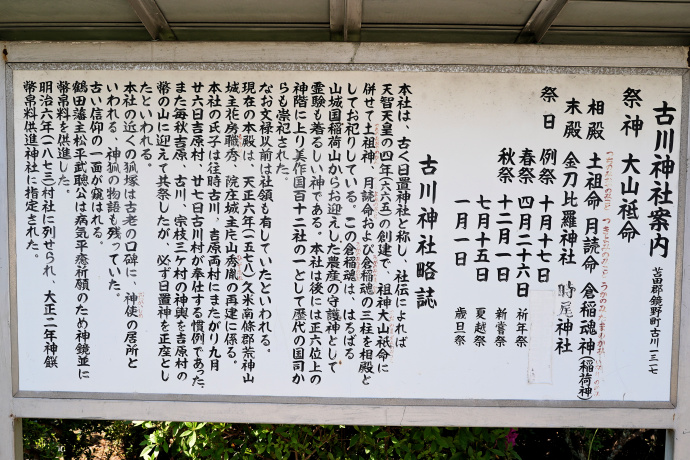 古川神社案内
苫田郡鏡野町古川一三一七
祭神　大山祗命
相殿　土祖命　月読命　倉稲魂神(稲荷神)
末殿　金刀比羅神社　時尾神社
祭日　例祭　十月十七日
春祭　四月二十六日　祈年祭
秋祭　十二月一日　新嘗祭
七月十五日　夏越祭
一月一日　歳旦祭
古川神社略誌
本社は、古く日置神社と称し、社伝によれば
天智天皇の四年(六六五)の創建で、祖神大山祇命に
併せて土祖神、月読命および倉稲魂の三柱を相殿と
してお祀りしている。この倉稲魂は、はるばる
山城国稲荷山からお迎えした農産の守護神として
霊験も著るしい神である。本社は後には正六位上の
神階に上り美作国百十二社の一として歴代の国司か
らも崇祀された。
なお文禄以前は社領も有していたといわれる。
現在の本殿は、天正六年(一五七八)久米南條郡荒神山
城主花房職秀、院庄城主片山秀胤の再建に係る。
本社の氏子は往時古川、吉原両村にまたがり九月
廿六日吉原村、廿七日古川村が奉仕する慣例であった、
また毎秋吉原、古川、宗枝三ケ村の神輿を吉原村の
幣の山に迎えて共祭したが、必ず日置神を正座とし
たといわれる。
本社の近くの狐塚は古老の口碑に、神使の居所と
いわれる、神狐の物語も残っていた。
古い信仰の一面が窺はれる。
鶴田藩主松平武聰公は病気平癒祈願のため神鏡並に
幣帛料を供進した。
明治六年(一八七三)村社に列せられ、大正二年神饌
幣帛料供進神社に指定された。